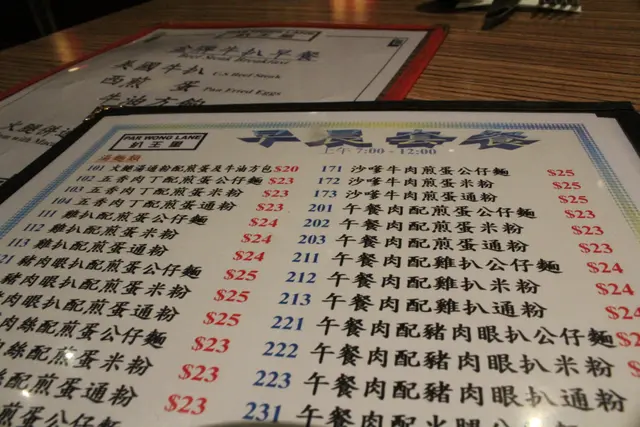 牛扒早餐
Beef Steak Breakfast
美國牛扒 U.S Beef Steak
西煎 蛋 Pan Fried Eggs
牛油方飽
PAR WONG LANE
扒王里
早晨套餐
上午 7:00 - 12:00
湯麵類
101 火腿湯通粉配煎蛋及牛油方包 $20
102 五香肉丁配煎蛋公仔麵 $23
103 五香肉丁配煎蛋米粉 $23
104 五香肉丁配煎蛋通粉 $23
111 雞扒配煎蛋公仔麵 $24
112 雞扒配煎蛋米粉 $24
113 雞扒配煎蛋通粉 $24
21 豬肉眼扒配煎蛋公仔麵 $25
豬肉眼扒配煎蛋米粉 $25
肉眼扒配煎蛋通粉 $25
肉絲配煎蛋公仔麵 $23
肉絲配煎蛋米粉 $23
絲配煎蛋通粉 $23
配煎蛋公仔麵
171 沙嗲牛肉煎蛋公仔麵 $25
172 沙嗲牛肉煎蛋米粉 $25
173 沙嗲牛肉煎蛋通粉 $25
201 午餐肉配煎蛋公仔麵 $23
202 午餐肉配煎蛋米粉 $23
203 午餐肉配煎蛋通粉 $23
211 午餐肉配雞扒公仔麵 $24
212 午餐肉配雞扒米粉 $24
213 午餐肉配雞扒通粉 $24
221 午餐肉配豬肉眼扒公仔麵
222 午餐肉配豬肉眼扒米粉
223 午餐肉配豬肉眼扒通粉
231 午餐肉配火腿公仔麵